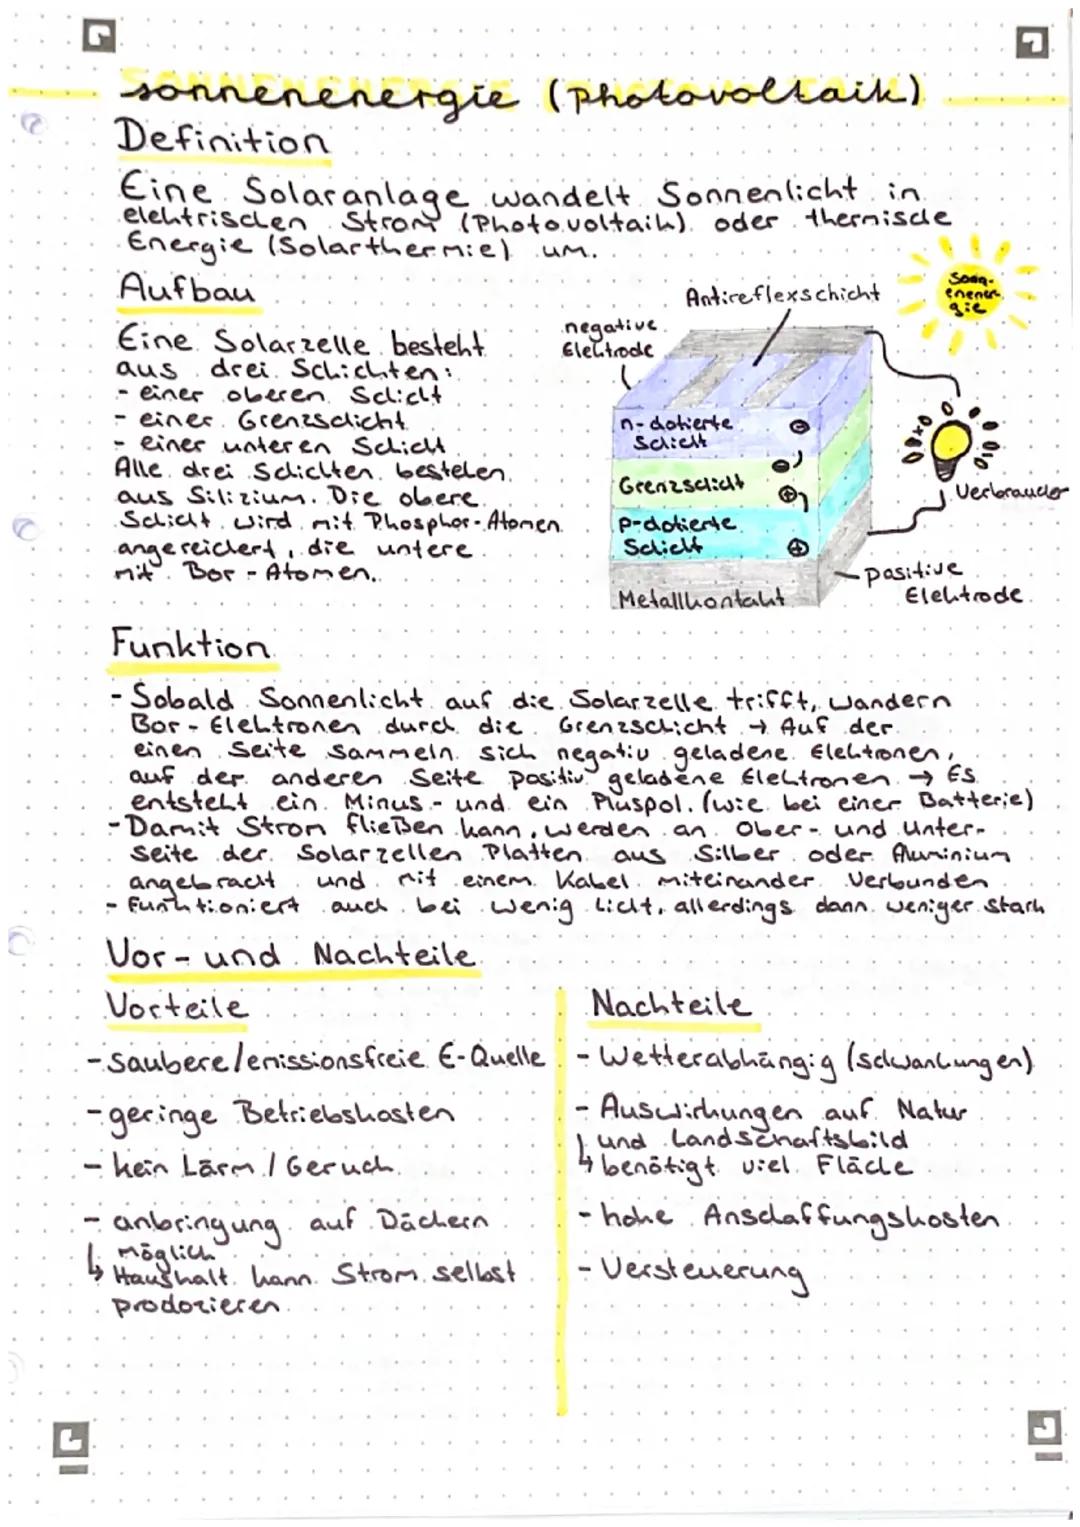 sonnenenergie (Photovoltaik)
Definition
Eine Solaranlage wandelt Sonnenlicht in
elektrischen Strom (Photovoltaik) oder thermische
Energie (Solarthermie) um.
Aufbau
Eine Solarzelle besteht
aus drei Schichten:
- einer oberen Schicht
- einer Grenzschicht
- einer unteren Schicht
Alle drei Schichten bestehen
aus Silizium. Die obere
Schicht wird mit Phosphor-Atomen
angereichert, die untere
mit Bor-Atomen.
Antireflexschicht
Sonn-
enener-
gie
negative
Elektrode
n-dotierte
Schicht
Grenzschicht
p-dotierte
Schicht
Metallkontakt
Verbraucher
positive
Elektrode
Funktion
- Sobald Sonnenlicht auf die Solarzelle trifft, wandern
Bor-Elektronen durch die Grenzschicht → Auf der
einen Seite sammeln sich negativ geladene Elektronen,
auf der anderen Seite positiv geladene Elektronen → Es
entsteht ein Minus- und ein Pluspol. (wie bei einer Batterie)
- Damit Strom fließen kann, werden an Ober- und Unter-
seite der Solarzellen Platten aus Silber oder Aluminium
angebracht und mit einem Kabel miteinander verbunden
- Funktioniert auch bei wenig Licht, allerdings dann weniger stark
Vor- und Nachteile
Vorteile
- saubere/emissionsfreie E-Quelle
- geringe Betriebskosten
- kein Lärm / Geruch
- anbringung auf Dächern
möglich
↳ Haushalt kann Strom selbst
prodozieren
Nachteile
- Wetterabhängig (schwankungen)
- Auswirkungen auf Natur
und Landschaftsbild
↳ benötigt viel Fläche
- hohe Anschaffungskosten
- Versteuerung